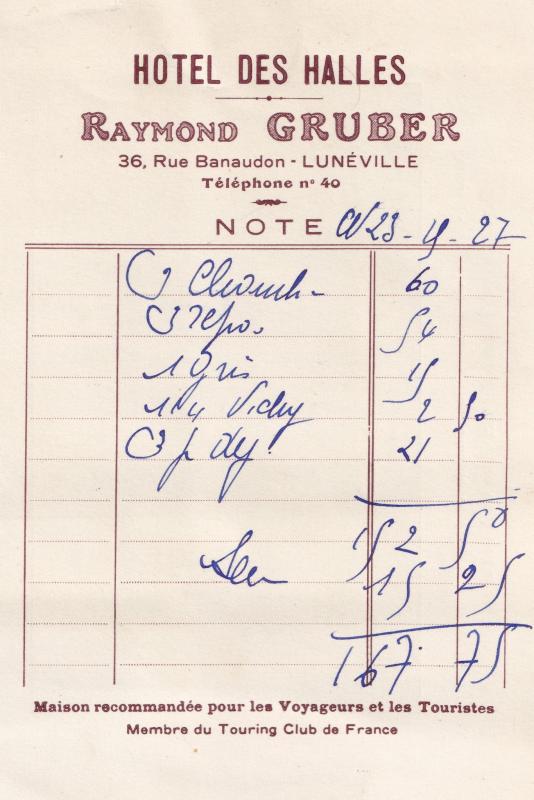 HOTEL DES HALLES
RAYMOND GRUBER
36, Rue Banaudon - LUNÉVILLE
Téléphone nº 40
NOTE 23 - 9 - 27
3 Chamb. 60
3 repo. 54
1 Gris 15
1 1/4 Vichy 2 50
3 p dej. 21
152 50
Ser 15 25
167. 75
Maison recommandée pour les Voyageurs et les Touristes
Membre du Touring Club de France